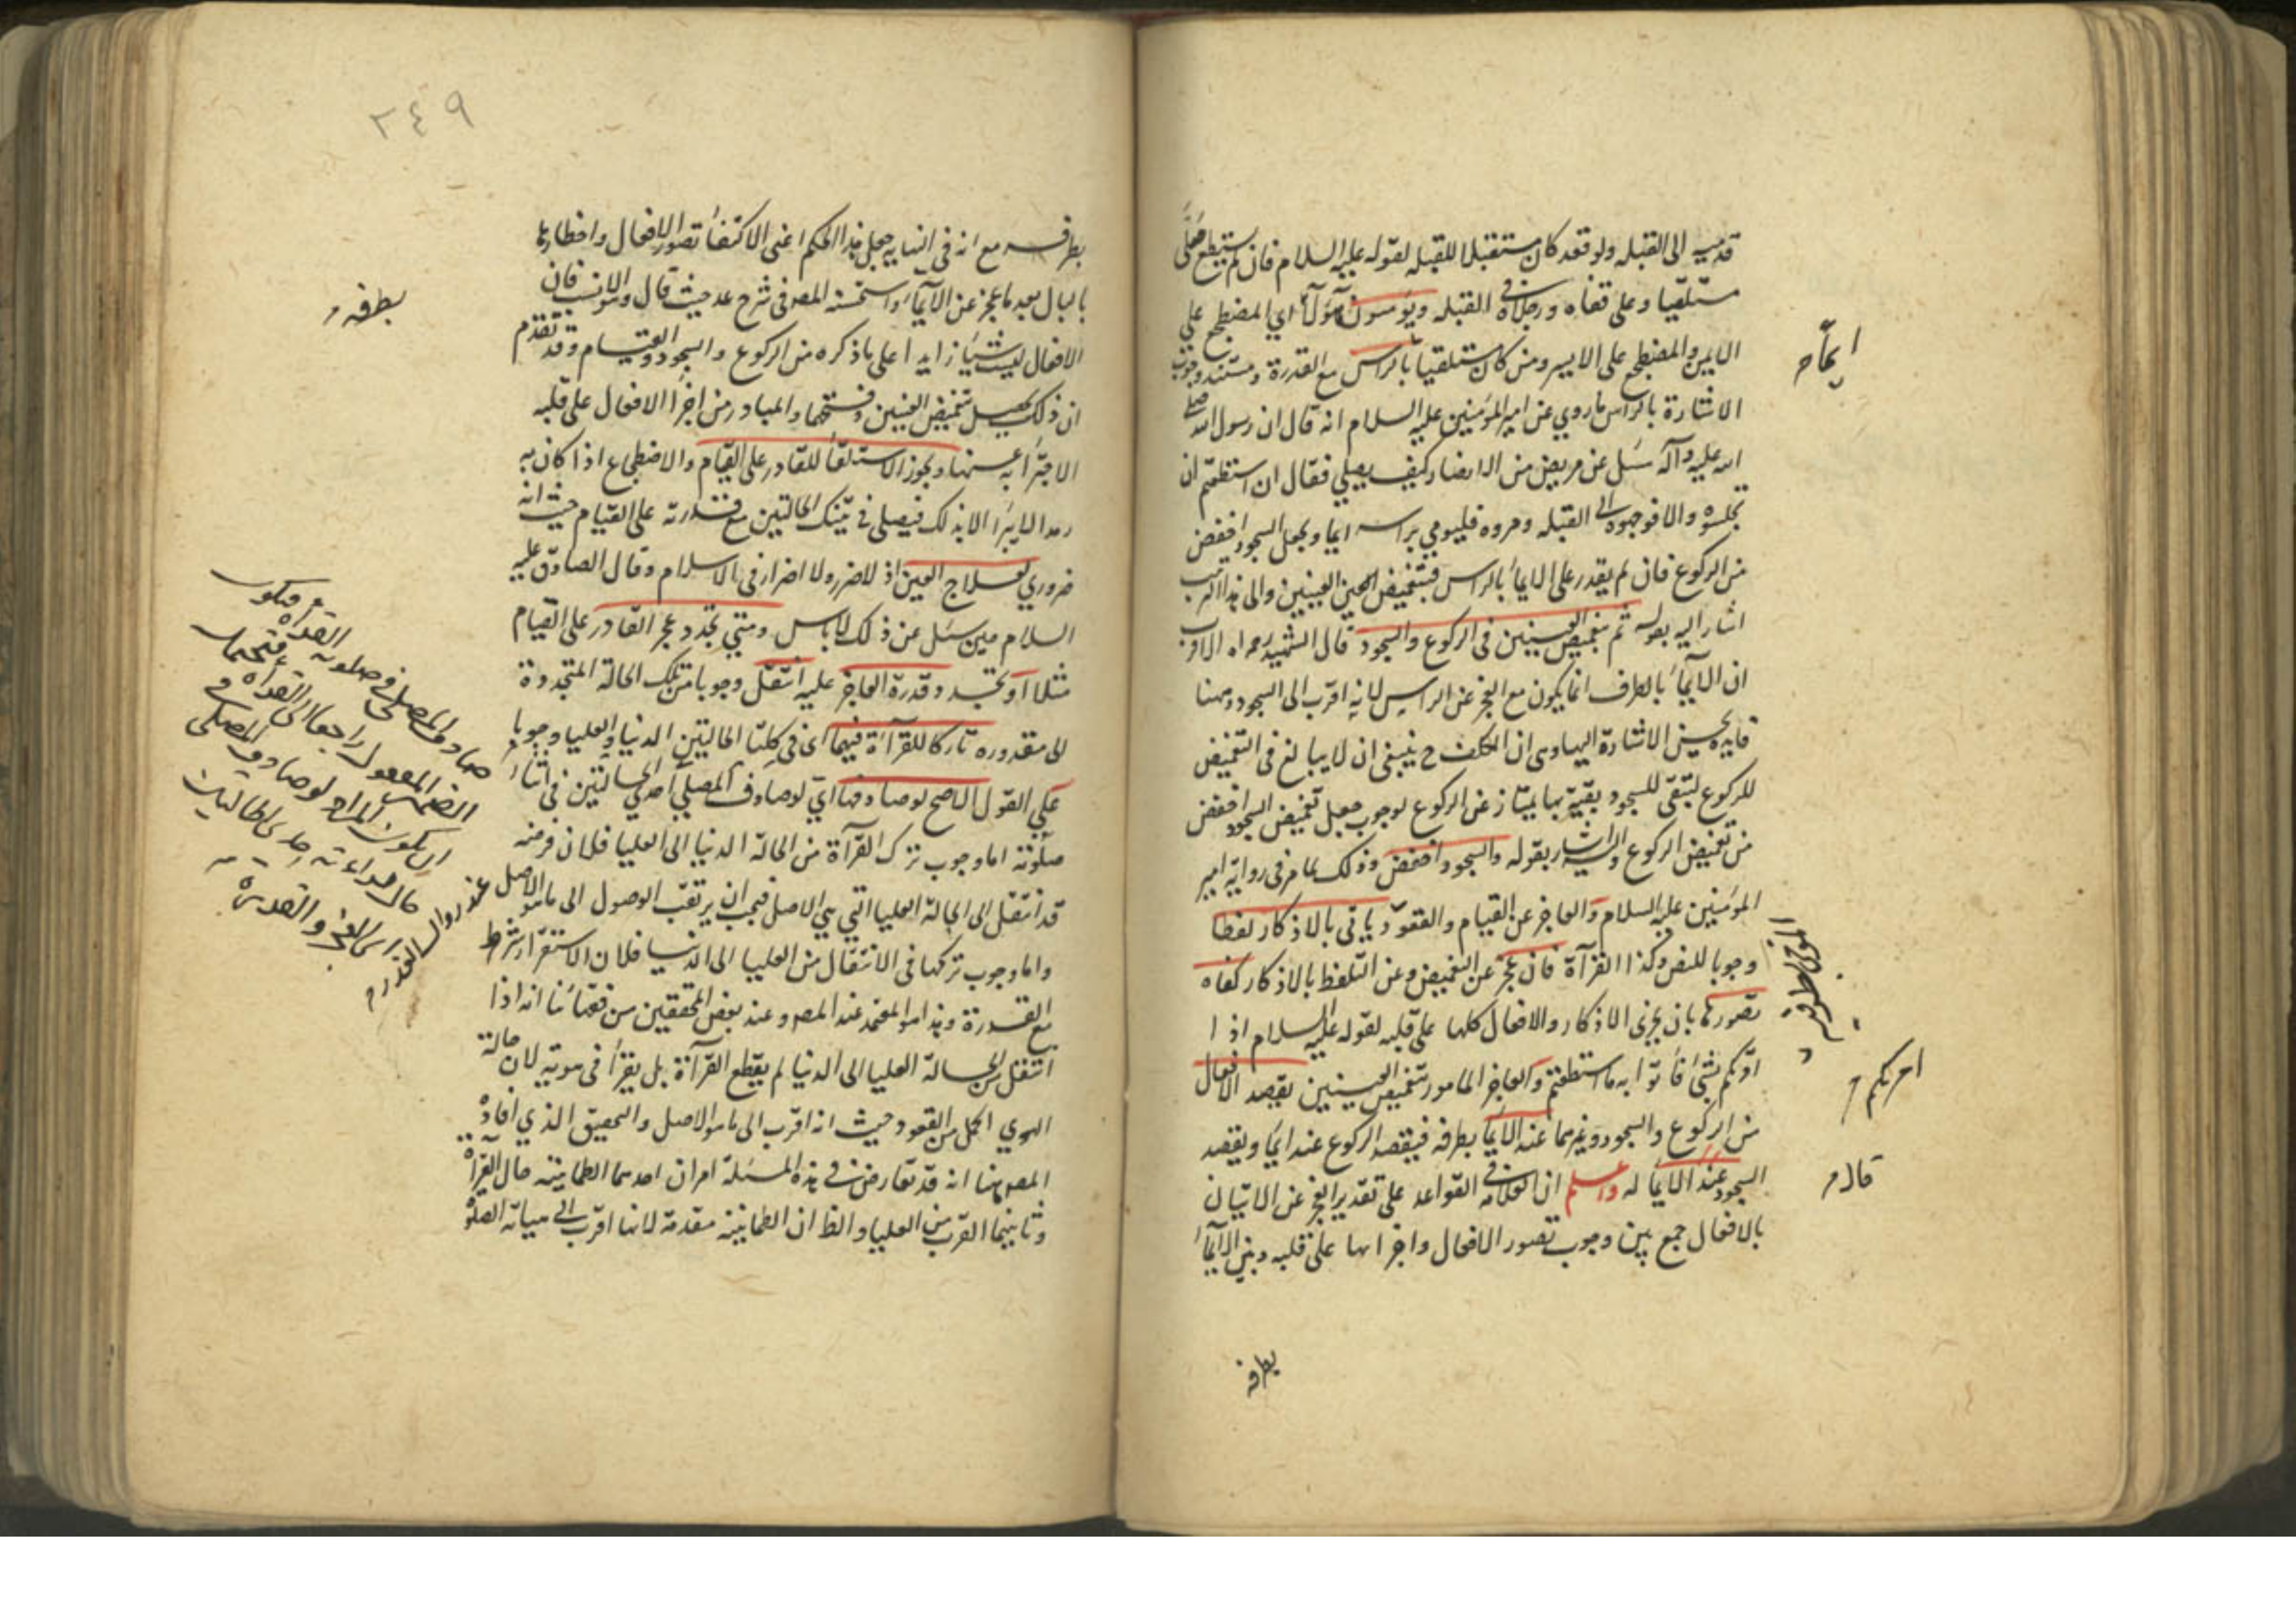 قدميه الى القبله ولو قعد كان مستقبلا للقبله لقوله عليه السلام فان لم يستطع صلى
مستلقيا وعلى قفاه ورجلاه في القبله ويؤمون هؤلآء اي المضطجع على
الايمن والمضطجع على الايسر ومن كان مستلقيا بالراس مع القدرة ومستند وجوب
الاشارة بالراس ما روي عن امير المؤمنين عليه السلام انه قال ان رسول الله صلى
الله عليه وآله سئل عن مريض من الانصار كيف يصلي فقال ان استطعتم ان
تجلسوه والا فوجهوه الى القبله ومروه فليومي براسه ايما ويجعل السجود اخفض
من الركوع فان لم يقدر على الايمآء بالراس فبتغميض العينين والى هذا الترتيب
اشار اليه بقوله ثم بتغميض العينين في الركوع والسجود قال الشهيد رحمه الله الاقرب
ان الايمآء بالطرف انما يكون مع العجز عن الراس لانه اقرب الى السجود وههنا
فايدة يحسن الاشارة اليها وهي ان المكلف ح ينبغي ان لا يبالغ في التغميض
للركوع لتبقى للسجود بقية بها يمتاز عن الركوع لوجوب جعل تغميض السجود اخفض
من تغميض الركوع واليه اشار بقوله والسجود اخفض وذلك لما مر في رواية امير
المؤمنين عليه السلام والعاجز عن القيام والقعود ياتي بالاذكار لفظا
وجوبا للنص وكذا القرآة فان عجز عن التغميض وعن التلفظ بالاذكار كفاه
تصورها بان يجري الاذكار والافعال كلها على قلبه لقوله عليه السلام اذا
امرتكم بشئ فأتوا به ما استطعتم والعاجز المامور بتغميض العينين يقصد الافعال
من الركوع والسجود وغيرهما عند الايمآ بطرفه فيقصد الركوع عند ايمآ ويقصد
السجود عند الايمآ له واعلم ان العلامه في القواعد على تقدير العجز عن الاتيان
بالافعال جمع بين وجوب تصور الافعال واجرائها على قلبه وبين الايمآء
بطرفه
ايمآء
امرتكم
قال
٢٤٩
بطرفه مع انه في النهايه جعل هذا الحكم اعني الاكتفآء تصور الافعال واخطارها
بالبال بعد ما عجز عن الايمآء واستحسنه المص في شرح عد حيث قال وهو الانسب فان
الافعال ليست شيئا زايدا على ما ذكره من الركوع والسجود والقيام وقد تقدم
ان ذلك يحصل بتغميض العينين وفتحهما والمبادر من اجرآ الافعال على قلبه
الاجتزآ به عنها ويجوز الاستلقآ للقادر على القيام والاضطجاع اذا كان به
رمد لا يبرأ الا بذلك فيصلي في تينك الحالتين مع قدرته على القيام حيث انه
ضروري لعلاج العين اذ لا ضرر ولا اضرار في الاسلام وقال الصادق عليه
السلام حين سئل عن ذلك لا باس ومتى تجدد عجز القادر على القيام
مثلا او تجدد قدرة العاجز عليه انتقل وجوبا من تلك الحالة المتجددة
الى مقدوره تاركا للقرآة فيهما اي في كلتا الحالتين الدنيا والعليا وجوبا
على القول الاصح لو صادفها اي لو صادف المصلي احدى الحالتين في اثنآء
صلوته اما وجوب ترك القرآة من الحالة الدنيا الى العليا فلان فرضه
قد انتقل الى الحالة العليا التي هي الاصل فيجب ان يرتقب الوصول الى ما هو الاصل
واما وجوب تركها في الانتقال من العليا الى الدنيا فلان الاستقرار شرط
مع القدرة وهذا هو المعتمد عند المص وعند بعض المحققين من فقهائنا انه اذا
انتقل من الحالة العليا الى الدنيا لم يقطع القرآة بل يقرأ في هويه لان حالة
الهوي اكمل من القعود حيث انه اقرب الى ما هو الاصل والتحقيق الذي افاده
المص ههنا انه قد تعارض في هذه المسئلة امران احدهما الطمانينة حال القرآة
وثانيهما القرب من العليا والظ ان الطمانينة مقدمة لانها اقرب الى هيأة الصلوة
بطرفه
صادف المصلي في صلوته القرآة فيكون
الضمير المفعول راجعا الى القرآة